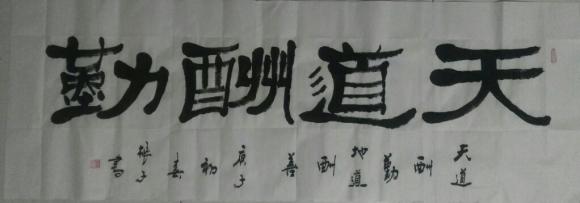 天道酬勤
天道酬勤地道酬善庚子初春
书